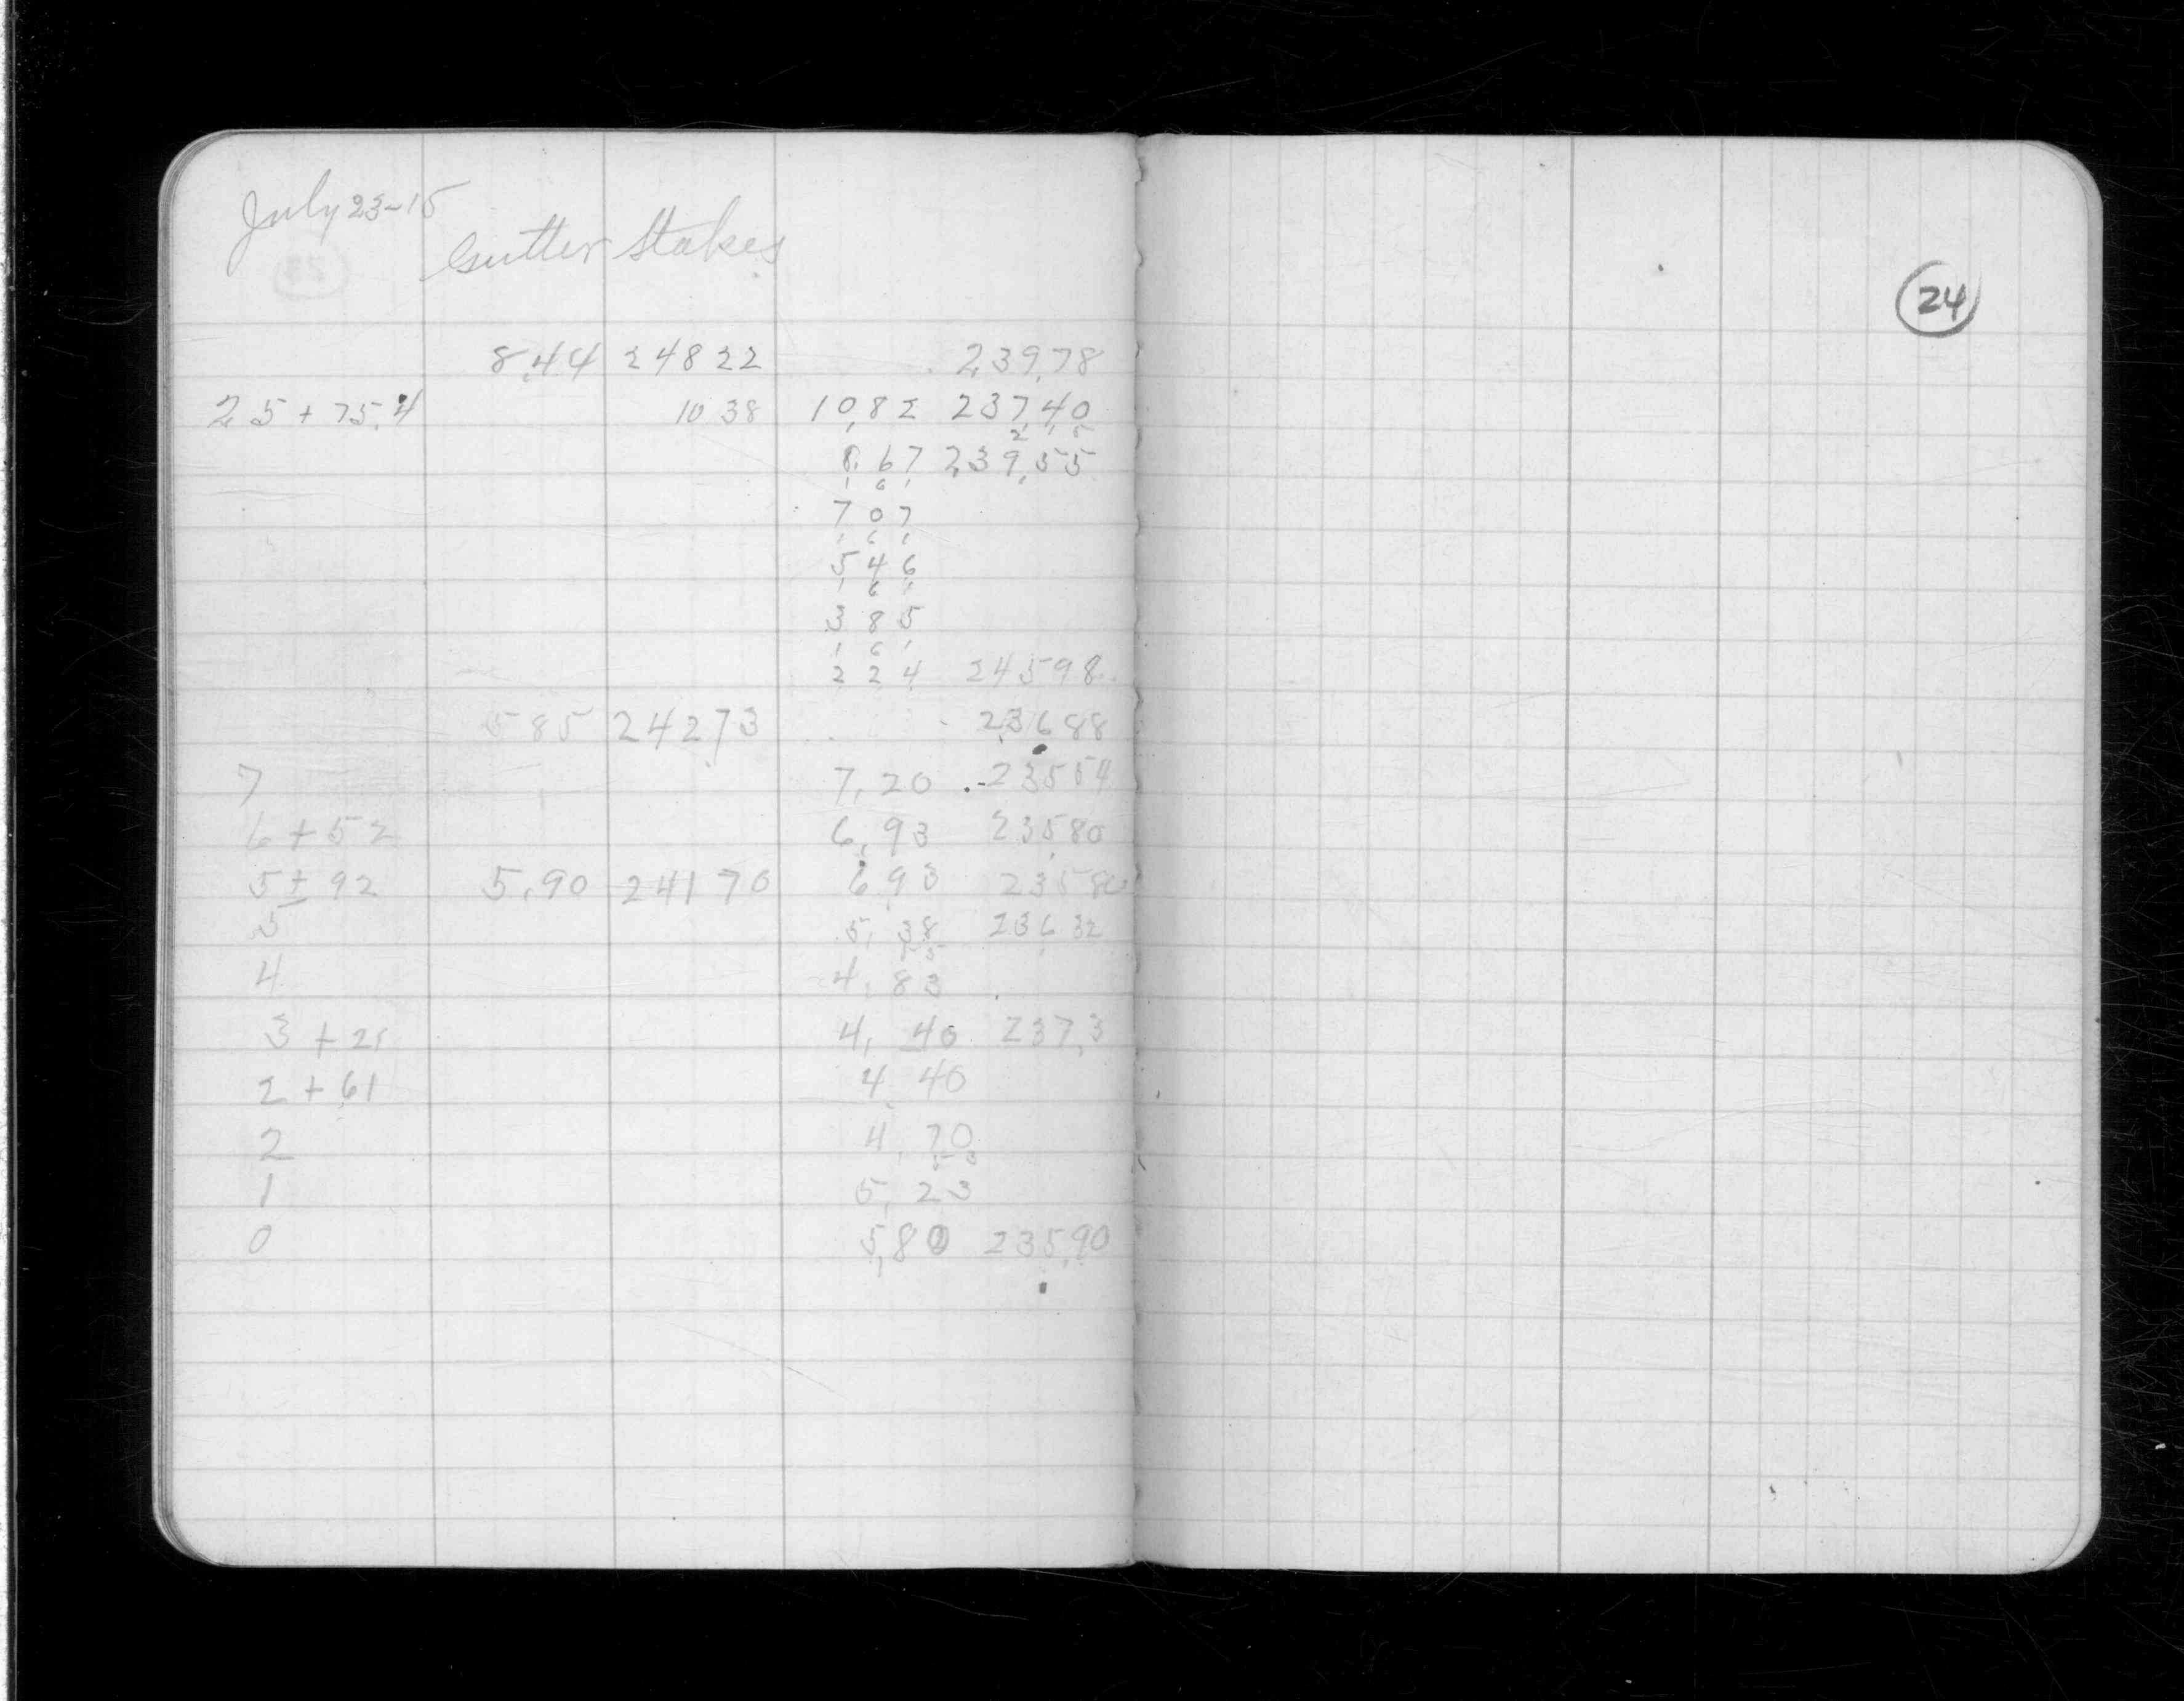 July 23-15
Gutter Stakes
24
8.44 24822 239.78
25 + 75.4 10 38 10,82 237,40
8.67 239.55
1 6 1
7 07
1 6 1
5 46
1 6 1
3 85
1 6 1
2 24 24598
585 24273 23688
7 7.20 23554
6 + 52 6.93 23580
5 + 92 5.90 24170 6 93 23580
5 5. 38 236 32
4 4. 83
3 + 21 4. 40 237.3
2 + 61 4 40
2 4. 70
1 5. 23
0 5.80 235.90